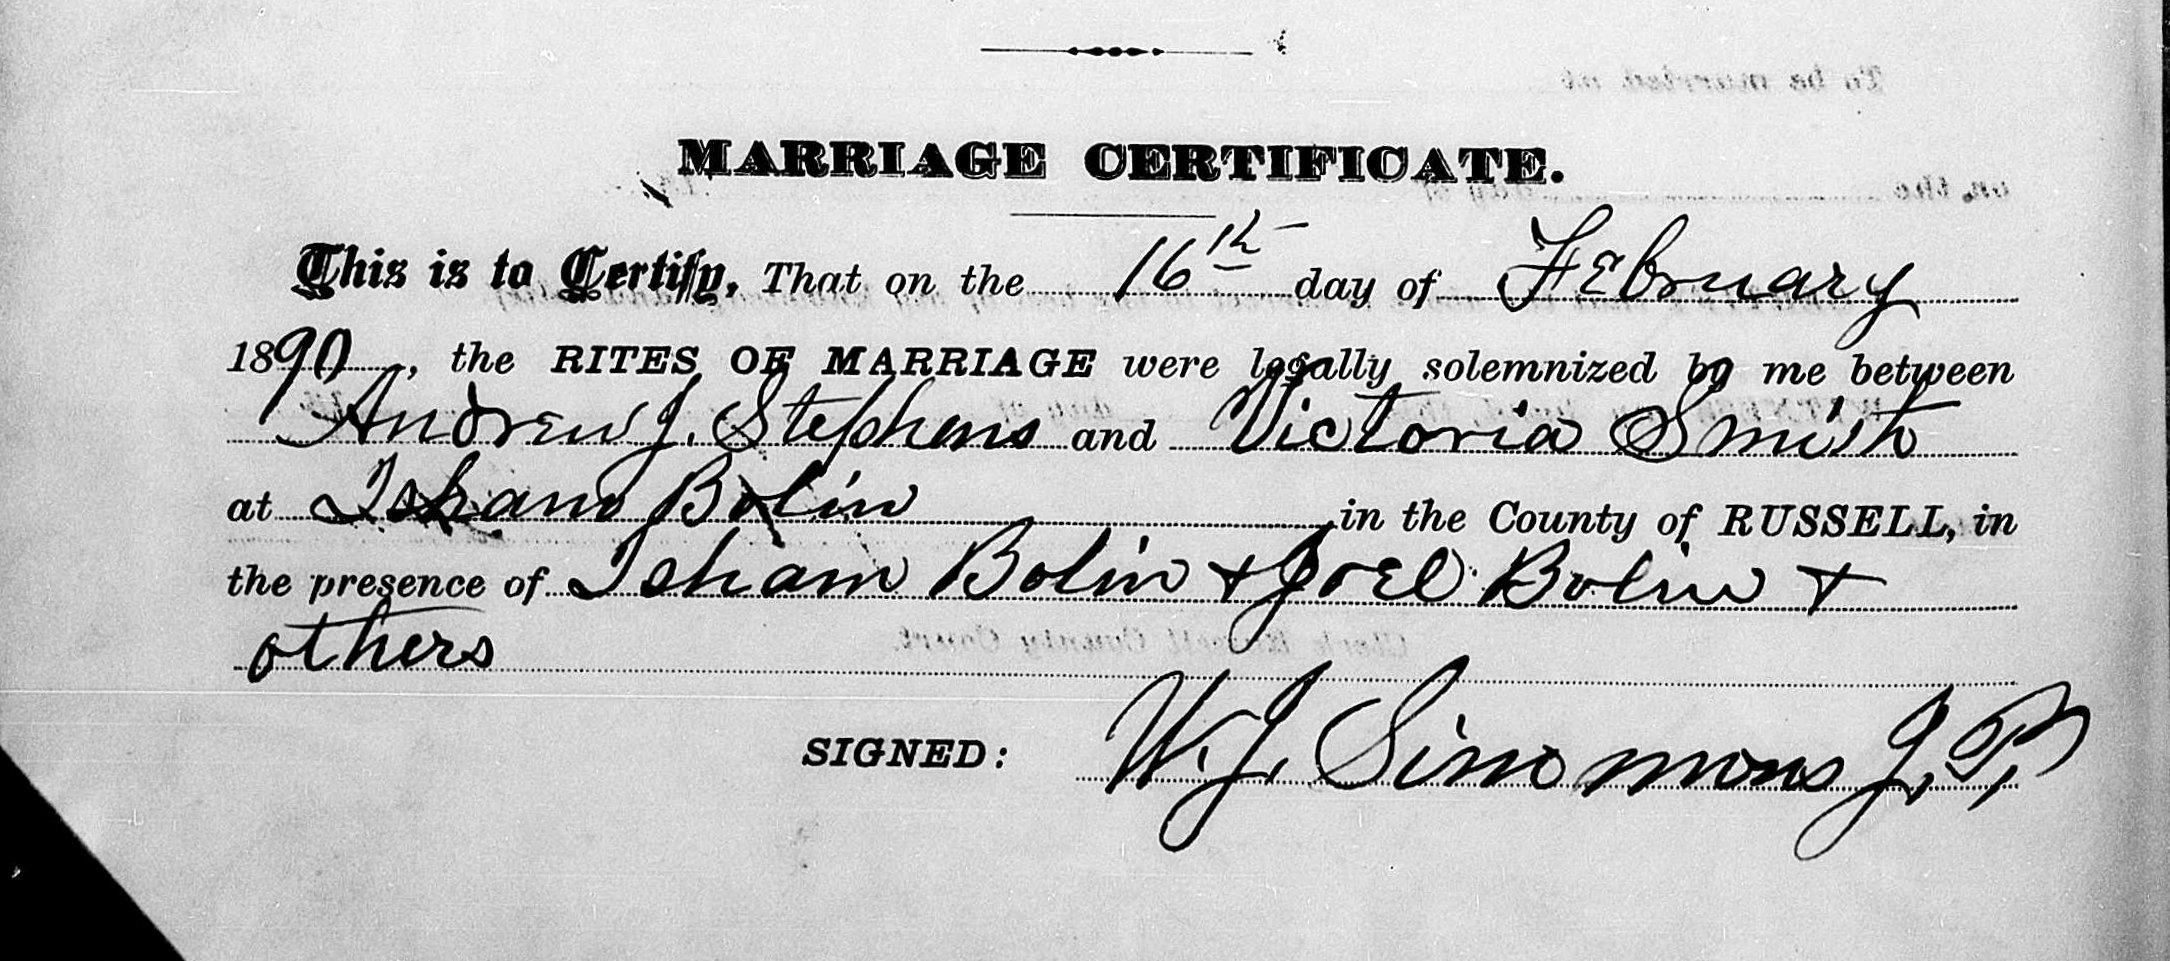 MARRIAGE CERTIFICATE.
This is to Certify, That on the 16th day of February
1890, the RITES OF MARRIAGE were legally solemnized by me between
Andrew J. Stephens and Victoria Smith
at Isham Bolin in the County of RUSSELL, in
the presence of Isham Bolin + Joel Bolin +
others
SIGNED: W. J. Simmons J. P.